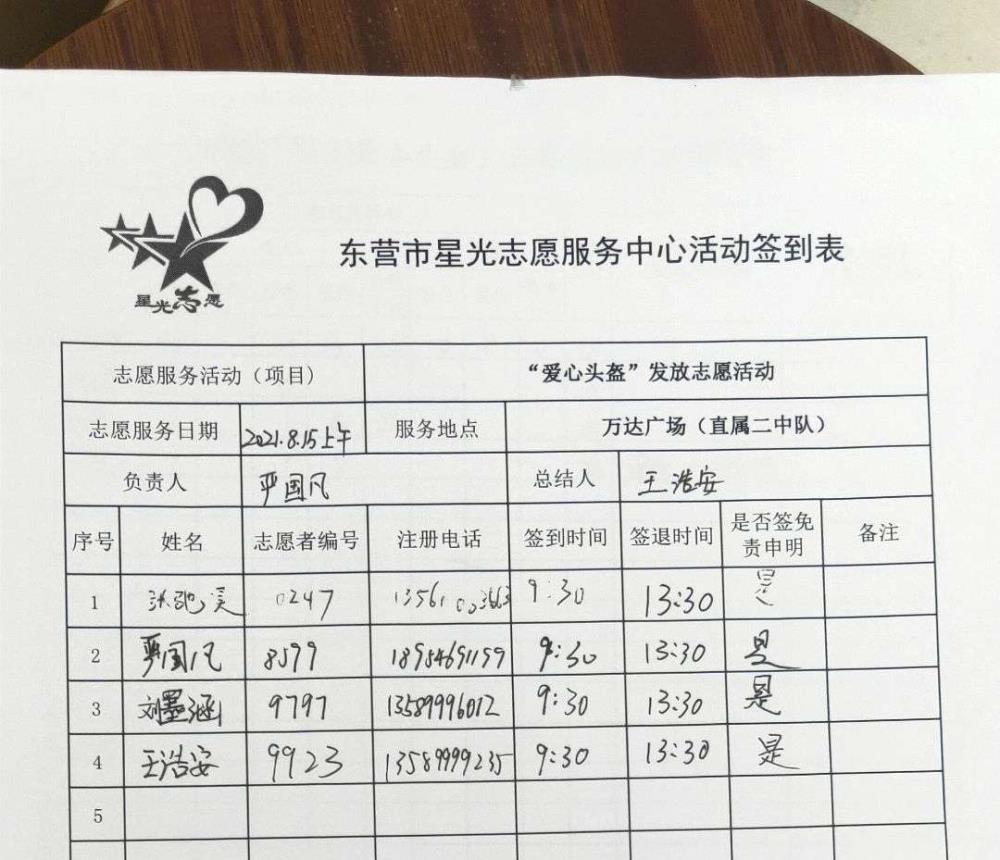 星光志愿
东营市星光志愿服务中心活动签到表
志愿服务活动（项目） “爱心头盔”发放志愿活动
志愿服务日期 2021.8.15上午 服务地点 万达广场（直属二中队）
负责人 严国凡 总结人 王浩安
序号 姓名 志愿者编号 注册电话 签到时间 签退时间 是否签免责申明 备注
1 0247 9:30 13:30 是
2 严国凡 8599 18954691159 9:30 13:30 是
3 刘墨涵 9797 13589996012 9:30 13:30 是
4 王浩安 9923 13589999235 9:30 13:30 是
5